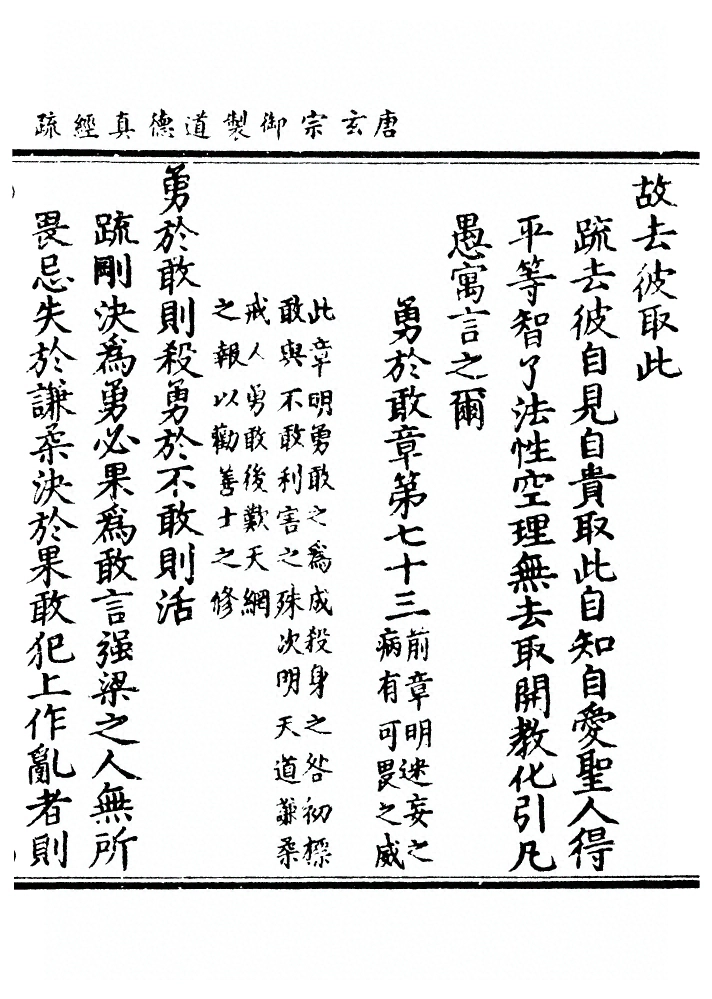 唐玄宗御製道德真經疏
故去彼取此
疏去彼自見自貴取此自知自愛聖人得
平等智了法性空理無去取開教化引凡
愚寓言之爾
勇於敢章第七十三
前章明迷妄之
病有可畏之威
此章明勇敢之為成殺身之咎初標
敢與不敢利害之殊次明天道謙柔
戒人勇敢後歎天網
之報以勸善士之修
勇於敢則殺勇於不敢則活
疏剛決爲勇必果爲敢言强梁之人無所
畏忌失於謙柔決於果敢犯上作亂者則